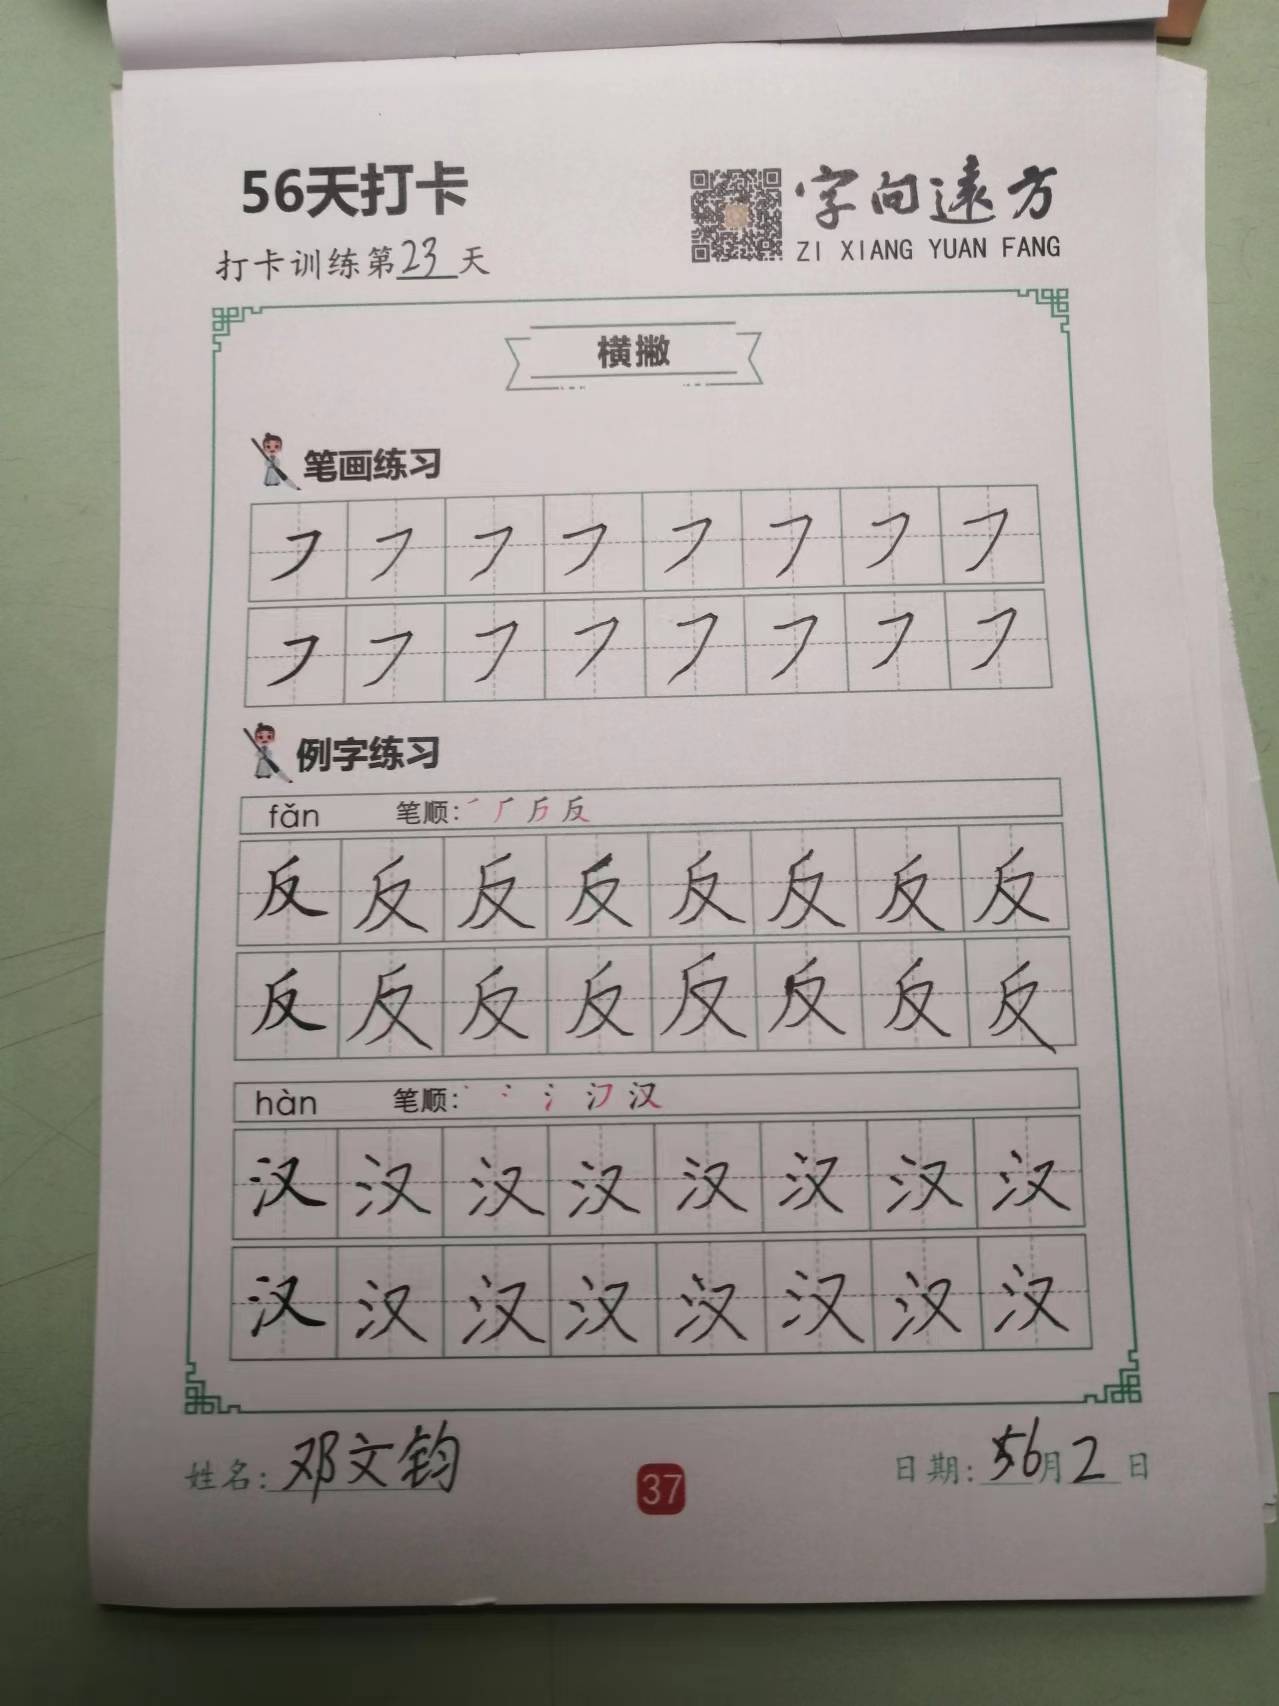 56天打卡
字向遠方
打卡训练第23天
ZI XIANG YUAN FANG
横撇
笔画练习
㇇㇇㇇㇇㇇㇇㇇㇇
㇇㇇㇇㇇㇇㇇㇇㇇
例字练习
fǎn 笔顺: 反
反反反反反反反反
反反反反反反反反
hàn 笔顺: 汉
汉汉汉汉汉汉汉汉
汉汉汉汉汉汉汉汉
姓名:邓文钧
37
日期:6月2日